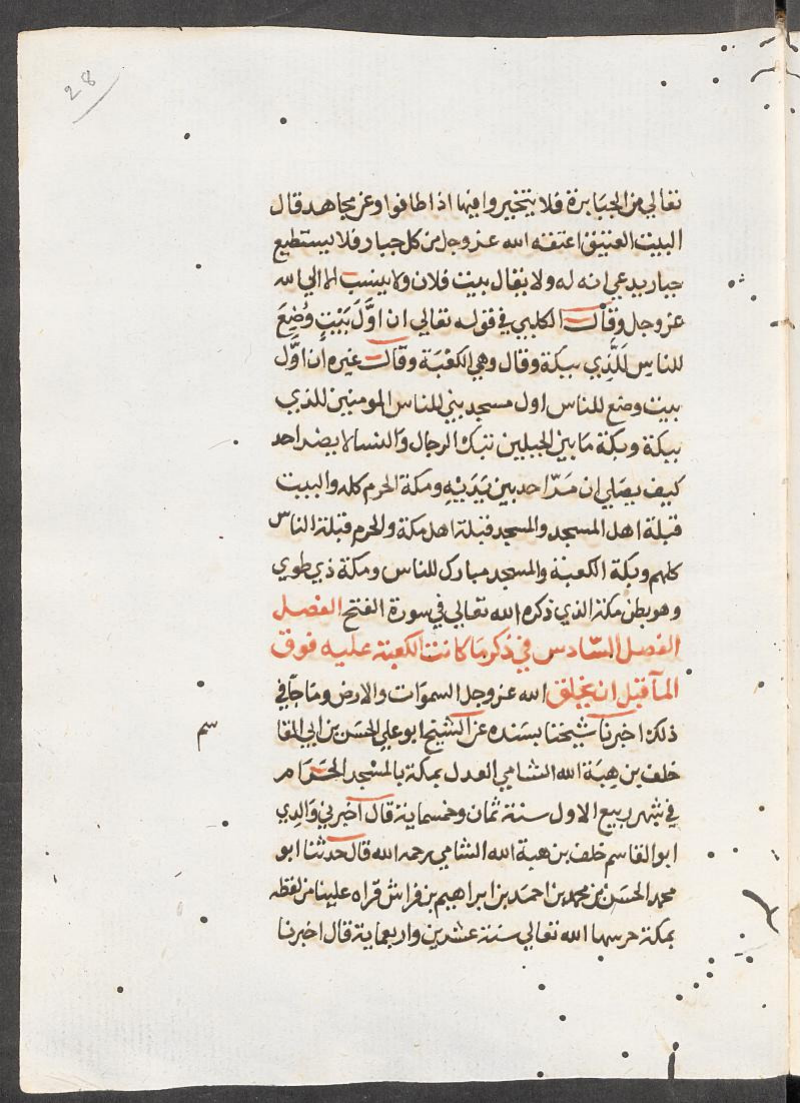 28
تعالي من الجبابرة فلا يتجبروا فيها اذا طافوا وعن مجاهد قال
البيت العتيق اعتقه الله عز وجل من كل جبار فلا يستطيع
جبار يدعي انه له ولا يقال بيت فلان ولا ينسب الا الي الله
عز وجل وقال الكلبي في قوله تعالي ان اوَّلَ بَيْتٍ وُضِعَ
للناسِ لَلَّذِي ببكة وقال وهي الكعْبَة وقال غيره ان اوَّل
بيت وضع للناس اول مسجد بني للناس المومنين للذي
ببكة وبكة مَا بين الجبلين تبتك الرجال وَالنسا لا يضر احد
كيف يصَلي ان مَرّ احد بين يَدَيْهِ ومكة الحرم كله والبيت
قبلة اهل المسجد والمسجد قبلة اهل مكة والحرم قبلة الناس
كلهم وبكة الكعبة والمسجد مبارك للناس ومكة ذي طوي
وهو بطن مكة الذي ذكره الله تعالي في سورة الفتح الفصل
الفصل السّادس في ذكر مَا كانت الكعبة عليه فوق
المآ قبل ان يخلق الله عز وجل السموَات والارض ومَا جآ في
ذلك اخبرنا شيخنا بسَنده عن الشيخ ابو علي الحسَن بن ابي القا
سم
خلف بن هِبَة الله الشامي العدل بمكة بالمسْجد الحَرَام
في شهر ربيع الاول سنة ثمان وخمسماية قال اخبرني وَالدِي
ابو القاسم خلف بن هبة الله الشامي رحمه الله قال حدثنا ابو
محمد الحسَن بن محمد بن احمَد بن ابراهيم بن فراش قراه علينا من لفظه
بمكة حرسها الله تعالي سنة عشرين واربعماية قال اخبرنا